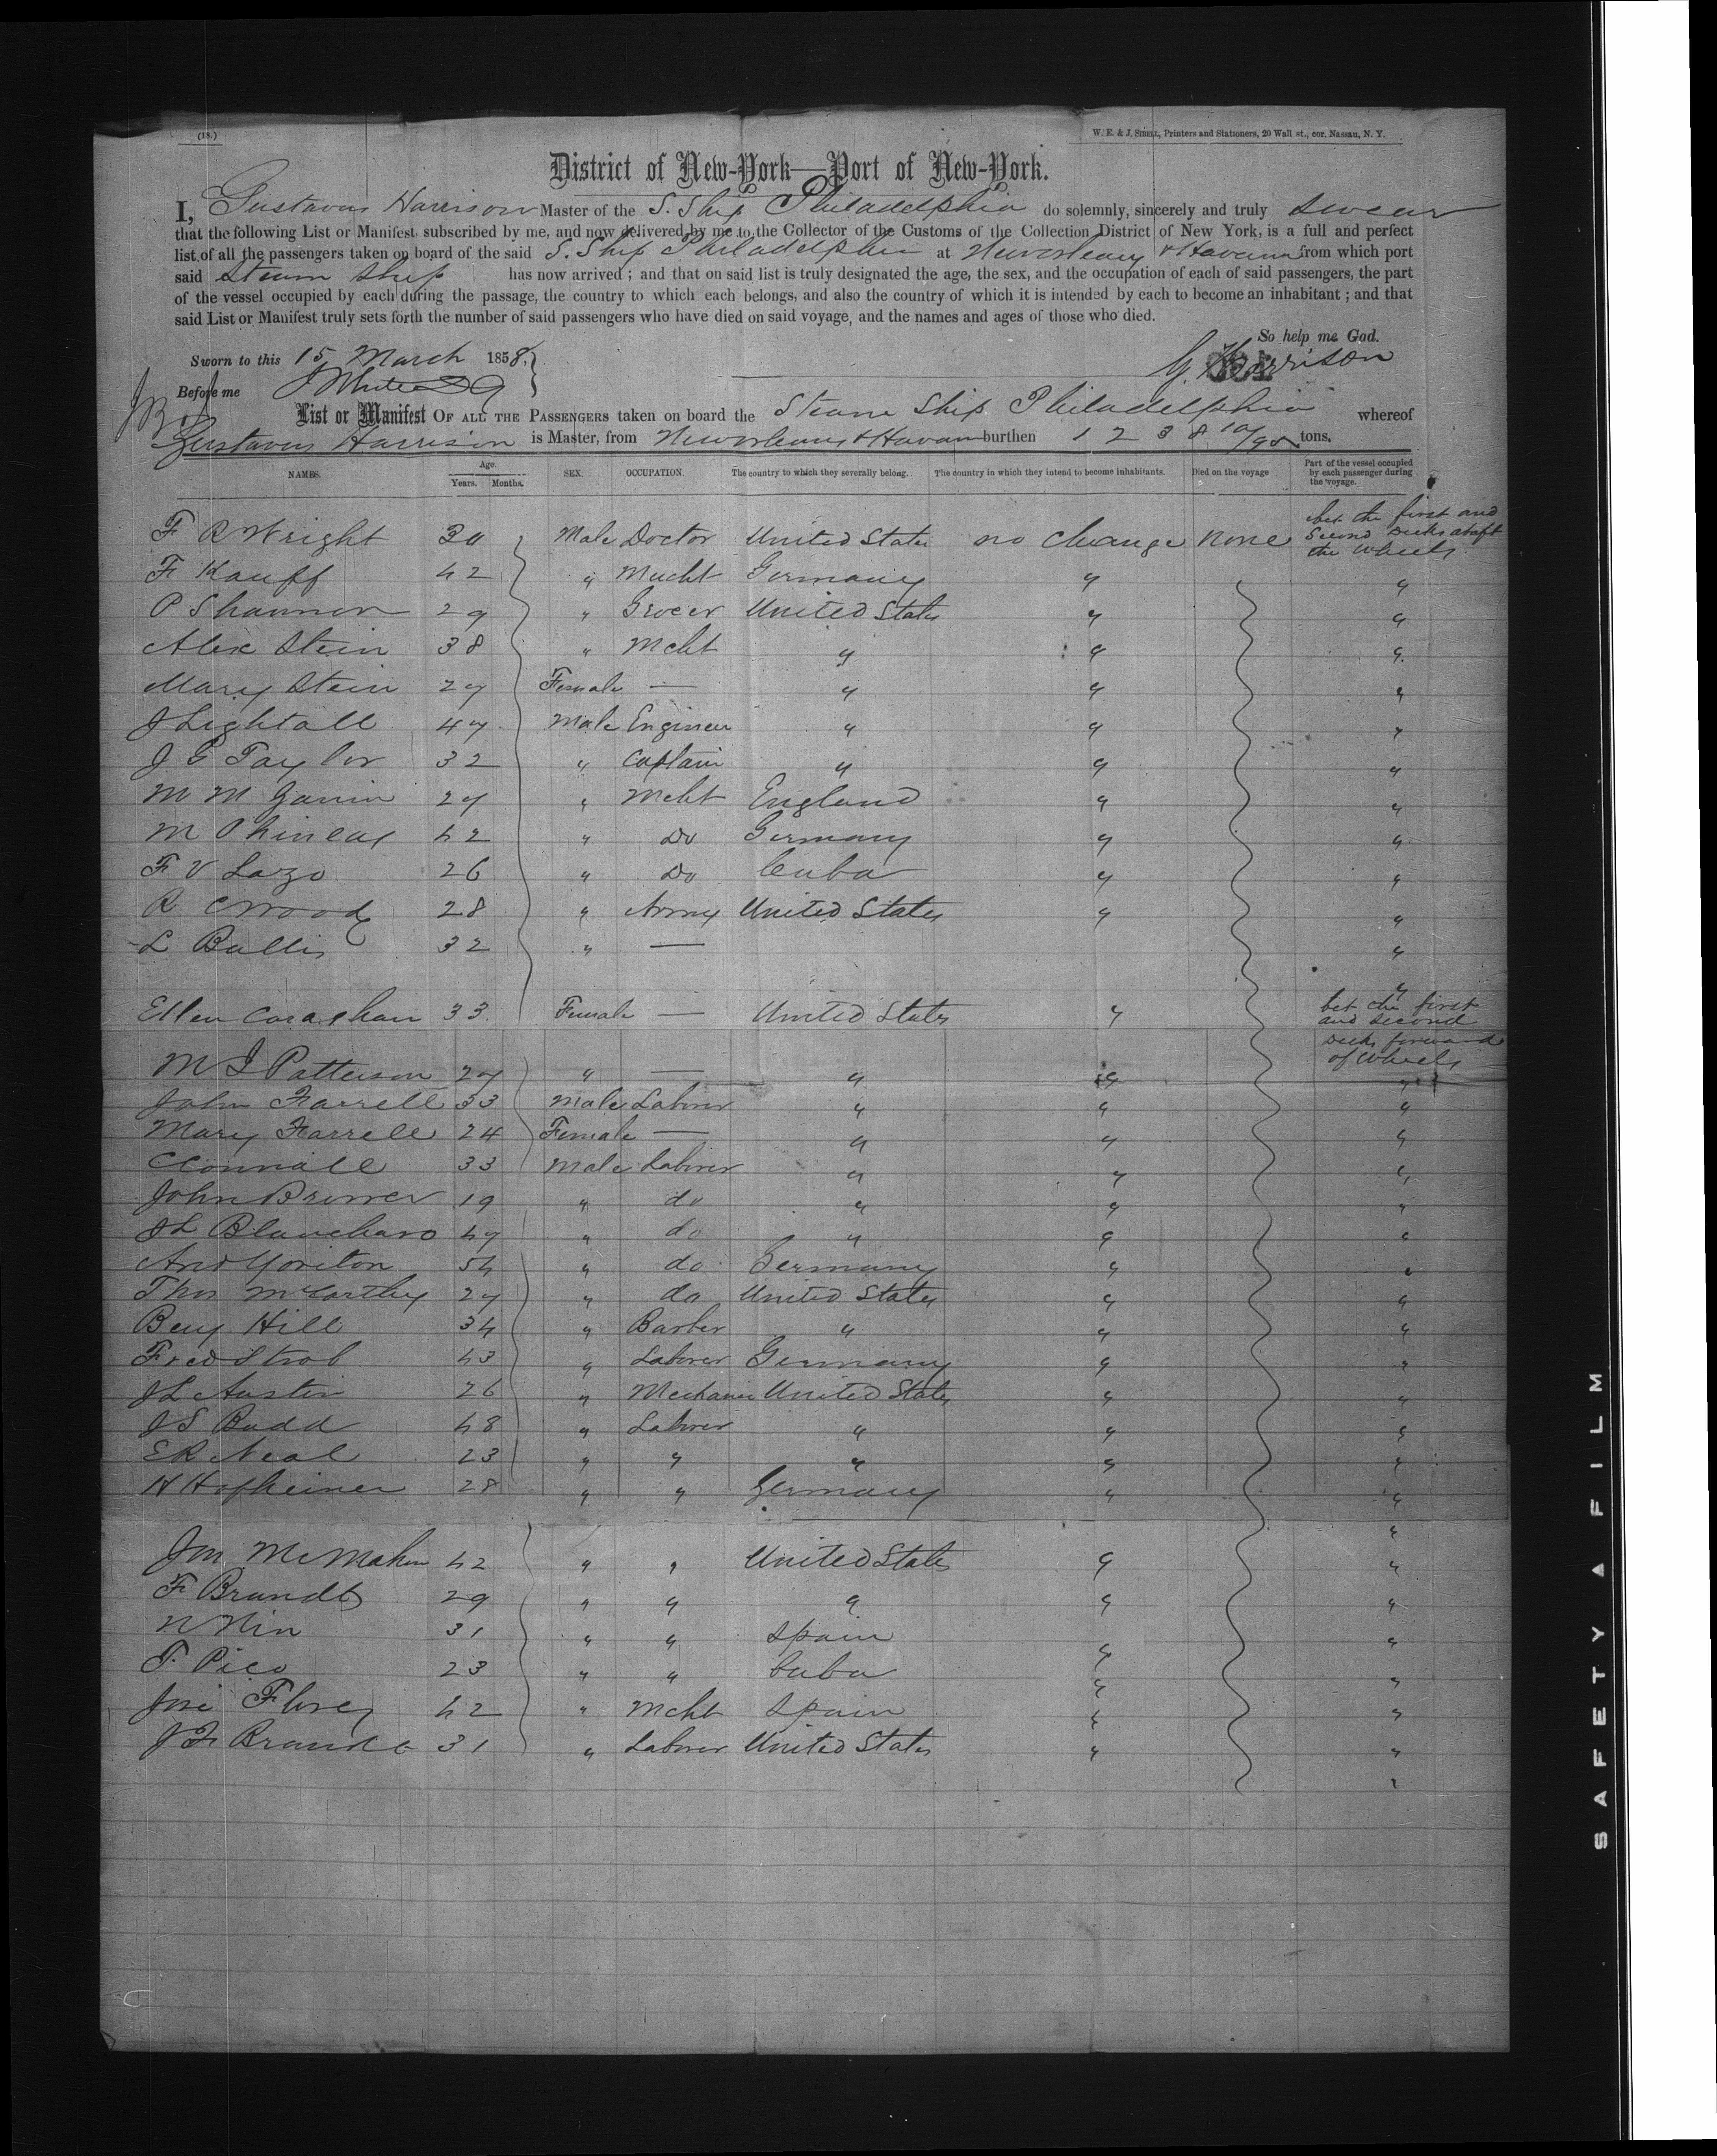 (18.)
W. E. & J. SIBELL, Printers and Stationers, 20 Wall st., cor. Nassau, N. Y.
District of New-York—Port of New-York.
I, Gustavus Harrison Master of the S. Ship Philadelphia do solemnly, sincerely and truly swear
that the following List or Manifest, subscribed by me, and now delivered by me to the Collector of the Customs of the Collection District of New York, is a full and perfect
list of all the passengers taken on board of the said S. Ship Philadelphia at Neworleans & Havana from which port
said Steam Ship has now arrived; and that on said list is truly designated the age, the sex, and the occupation of each of said passengers, the part
of the vessel occupied by each during the passage, the country to which each belongs, and also the country of which it is intended by each to become an inhabitant; and that
said List or Manifest truly sets forth the number of said passengers who have died on said voyage, and the names and ages of those who died.
So help me God.
Sworn to this 15 March 1858.
G. Harrison
Before me
List or Manifest OF ALL THE PASSENGERS taken on board the Steam Ship Philadelphia whereof
Gustavus Harrison is Master, from Neworleans & Havana burthen 1238 10/95 tons.
NAMES. Age. Years. Months. SEX. OCCUPATION. The country to which they severally belong. The country in which they intend to become inhabitants. Died on the voyage Part of the vessel occupied by each passenger during the voyage.
F R Wright 30 Male Doctor United States no change none bet the first and Second Decks abaft the Wheels
F Kauff 42 " Mercht Germany " "
P Shannon 29 " Grocer United States " "
Alex Stein 38 " Mcht " " "
Mary Stein 27 Female — " " "
J Lightall 47 Male Engineer " " "
J G Taylor 32 " Captain " " "
M M Ganin 27 " Mcht England " "
M Phineas 42 " Do Germany " "
F V Lazo 26 " Do Cuba " "
R C Wood 28 " Army United States " "
L Bullis 32 " — "
"
Ellen Caraghan 33 Female — United States " bet the first and second Decks forward of Wheels
M I Patterson 27 " — " " "
John Farrell 33 Male Laborer " " "
Mary Farrell 24 Female — " " "
C Connall 33 Male Laborer " " "
John Brower 19 " do " " "
J L Blanchard 47 " do " " "
And Yoriton 54 " do Germany " "
Thos McCarthy 27 " do United States " "
Benj Hill 34 " Barber " " "
Fred Strob 43 " Laborer Germany " "
J L Austin 26 " Mechanic United States " "
J S Budd 48 " Laborer " " "
E R Neal 23 " " " " "
H Hofheimer 28 " " Germany " "
"
Jno McMahon 42 " " United States " "
F Brandts 29 " " " " "
N Nin 31 " " Spain " "
F. Pico 23 " " Cuba " "
Jose Flores 42 " Mcht Spain " "
J F Brando 31 " Laborer United States " "
"
SAFETY FILM